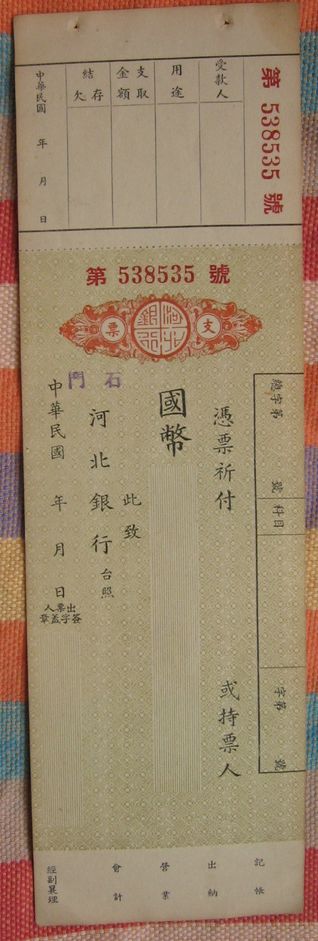 第 538535 號
受款人
用途
支取金額
結存欠
中華民國 年 月 日
第 538535 號
支票
河北銀行
總字第 號
科目
字第 號
憑票祈付 或持票人
國幣
此致
河北銀行 台照
石門
中華民國 年 月 日
出票人
簽字蓋章
記帳
出納
營業
會計
經副襄理